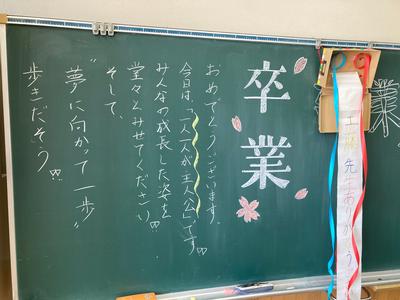 卒業
おめでとうございます。
今日は、「一人一人が主人公」です!!
みんなの成長した姿を
堂々とみせてください!
そして、
"夢に向かって一歩"
歩きだそう!!
先生ありがとう
業